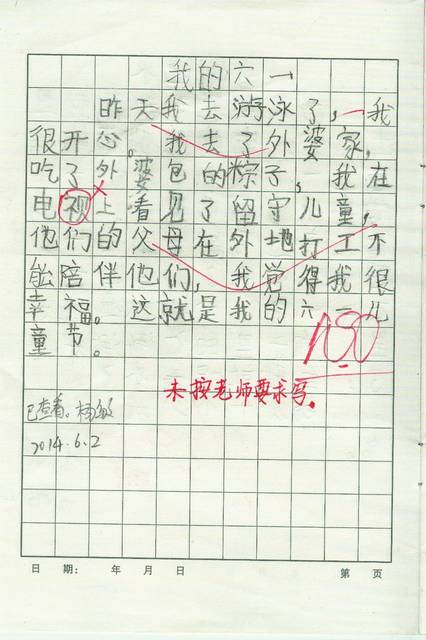 我的六一
昨天我去游泳了,我
很开心。我去了外婆家,
吃了外婆包的粽子,我在
电视上看见了留守儿童,
他们的父母在外地打工不
能陪伴他们,我觉得我很
幸福。这就是我的六一儿
童节。
未按老师要求写。
已查看。
2014.6.2
日 期: 年 月 日 第 页